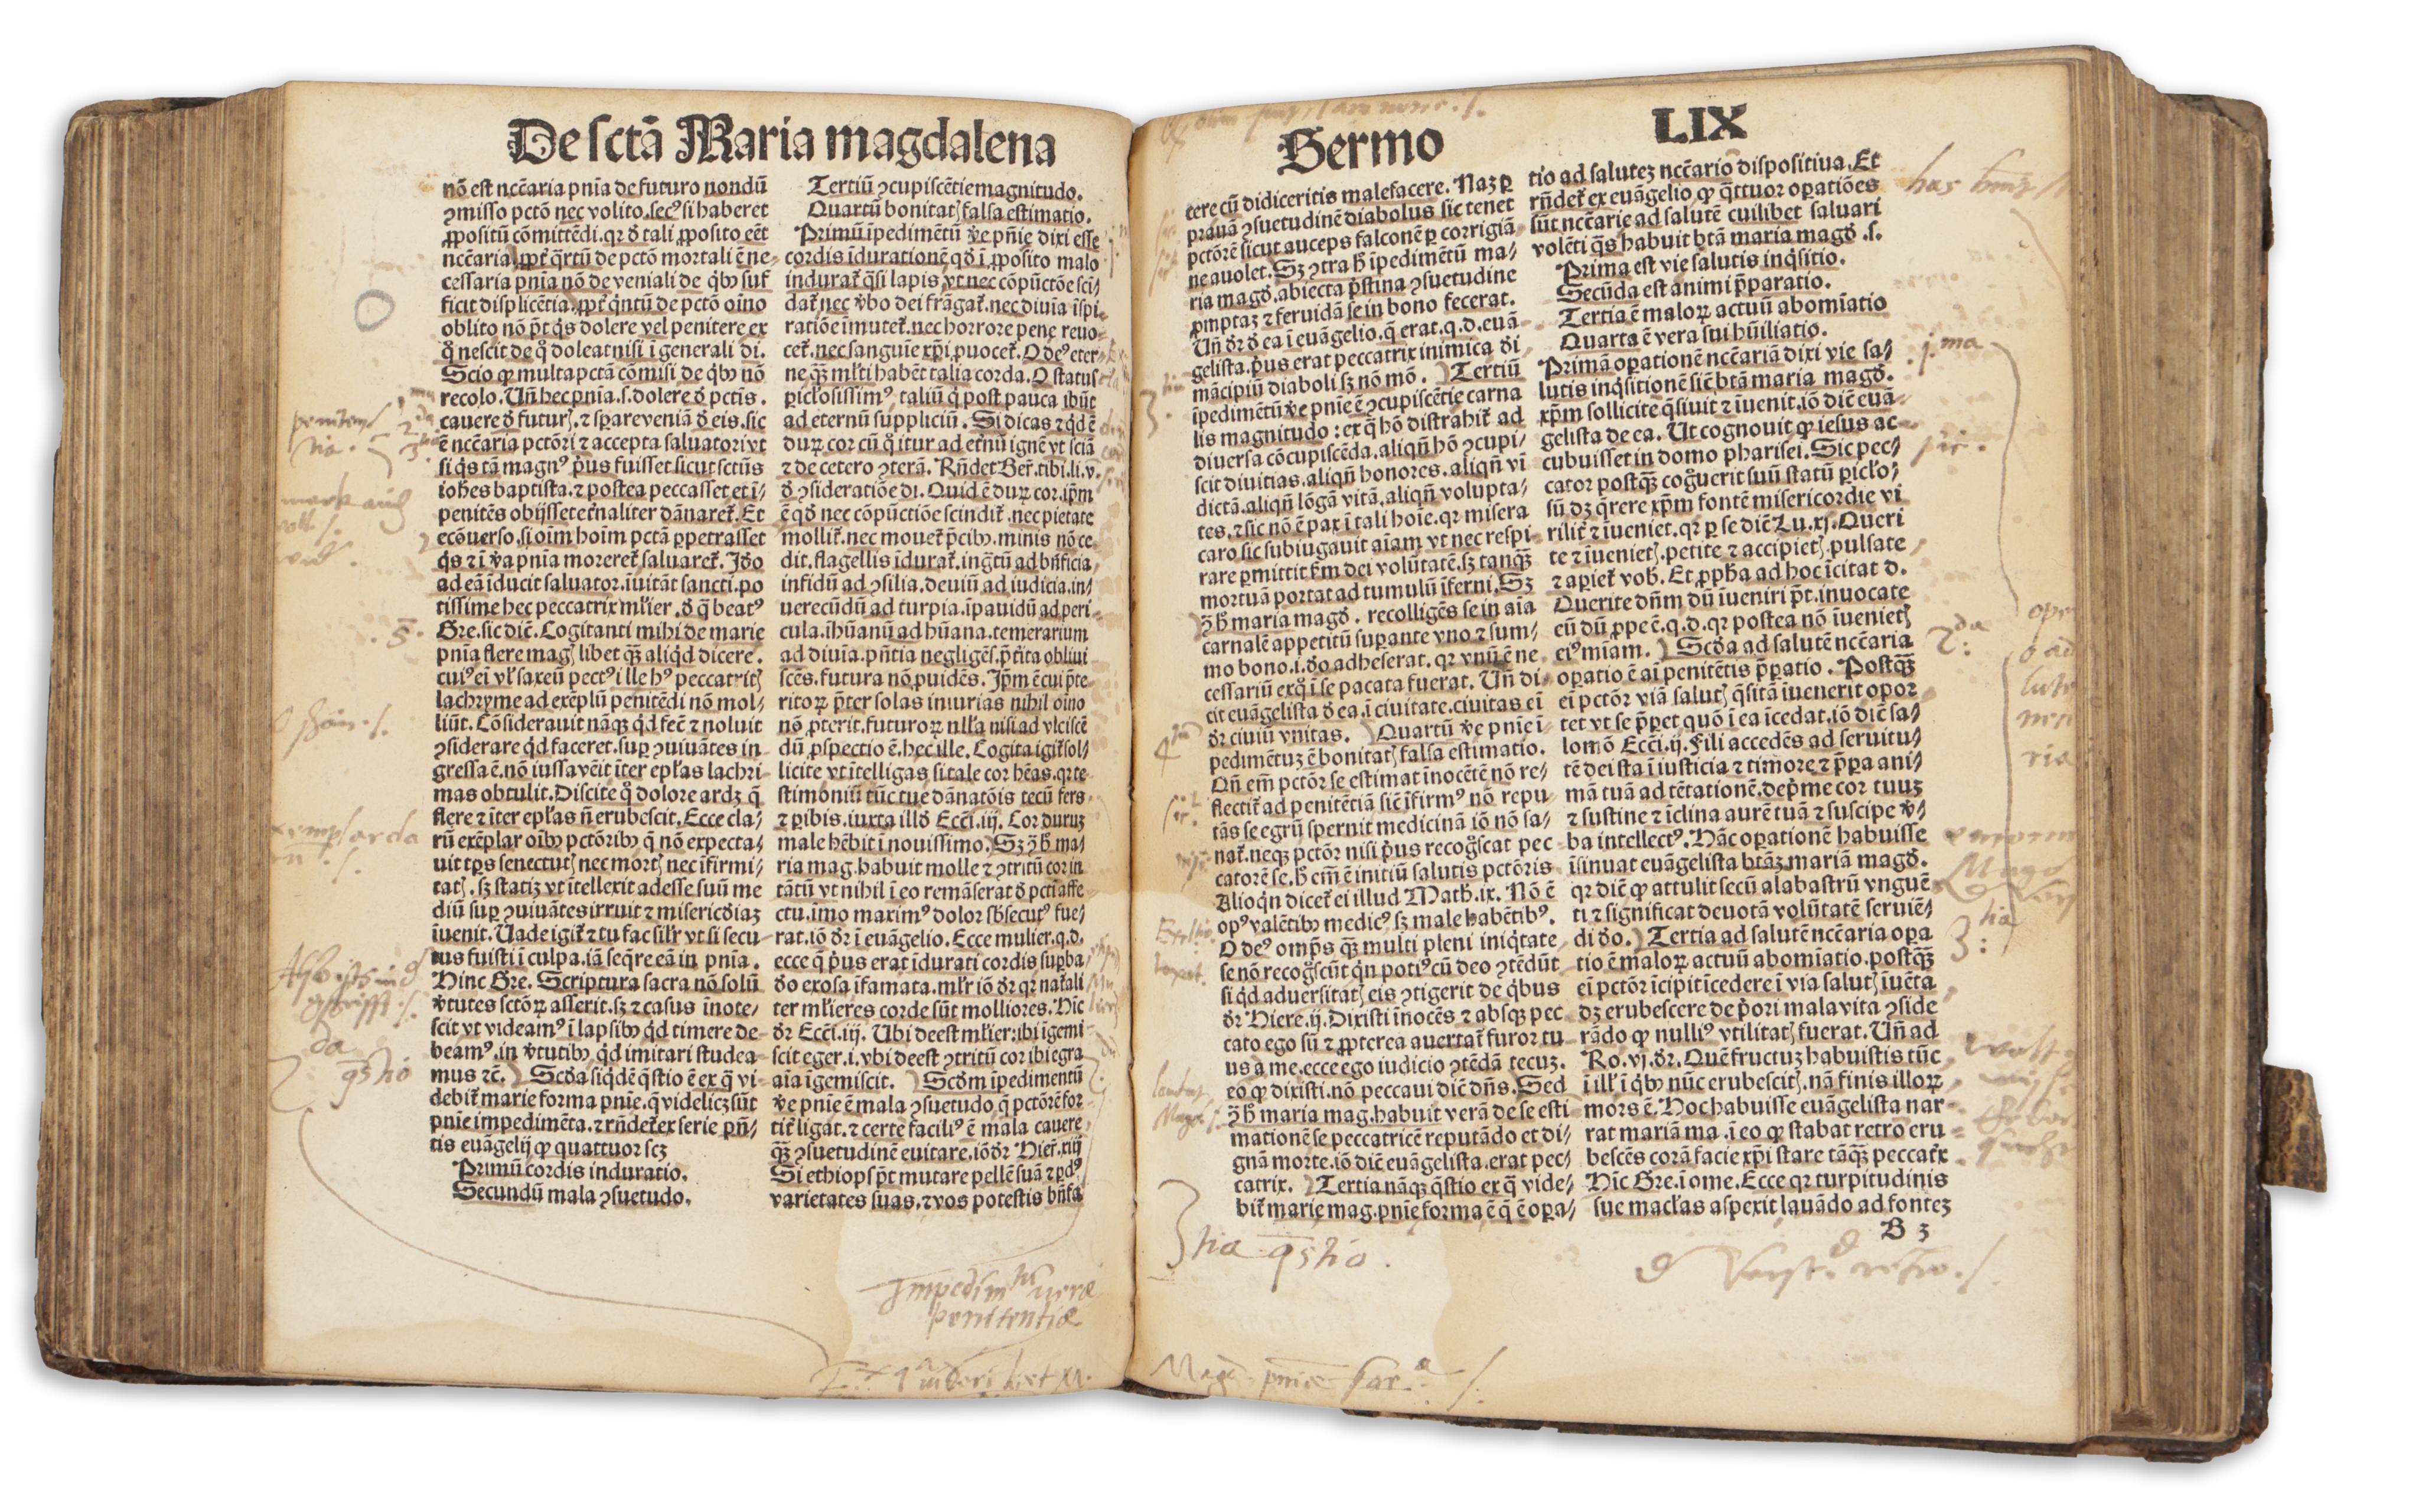 De sctã Maria magdalena
nõ est nc̃caria pnĩa de futuro nondũ
ꝯmisso pctõ nec volito.secꝰ si haberet
ꝓpositũ cõmittẽdi.qꝛ ꝺ tali ꝓposito eẽt
nc̃caria.ꝓpt̃ q̃rtũ de pctõ mortali ẽ ne-
cessaria pnĩa nõ de veniali de q̇bꝰ suf
ficit displicẽtia.ꝓpt̃ q̃ntũ de pctõ oĩno
oblito nõ põt q̇s dolere vel penitere ex
q̊ nescit de q̊ doleat nisi ĩ generali di.
Scio ꝙ multa pctã cõmisi de q̇bꝰ nõ
recolo.Uñ hec pnĩa.s.dolere ꝺ pctĩs.
cauere ꝺ futurꝭ.⁊ spare veniã ꝺ eis.sic
ẽ nc̃caria pctõri ⁊ accepta saluatori vt
si q̇s tã magnꝰ pͥus fuisset sicut sctũs
iohẽs baptista.⁊ postea peccasset et ĩ/
penitẽs obijsset et̃naliter dãnaret̃.Et
ecõuerso.si oĩm hoĩm pctã ꝑpetrasset
q̇s ⁊ ĩ v̾a pnĩa moreret̃ saluaret̃.Iꝺo
ad eã ĩducit saluator.ĩuitãt sancti.po
tissime hec peccatrix ml̃ier.ꝺ q̃ beatꝰ
Gre.sic diẽ.Cogitanti mihi de marie
pnĩa flere magꝭ libet q̃ꝫ aliq̇d dicere.
cuiꝰ eĩ vl̃ saxeũ pectꝰ ille hꝰ peccatricꝭ
lachryme ad exẽplũ penitẽdi nõ mol/
liũt.Cõsiderauit nãqꝫ q̇d fec̃ ⁊ noluit
ꝯsiderare q̇d faceret.suꝑ ꝯuiuãtes in-
gressa ẽ.nõ iussa vẽit ĩter epl̃as lachri-
mas obtulit.Discite q̊ dolore ardꝫ q̃
flere ⁊ ĩter epl̃as ñ erubescit.Ecce cla/
rũ exẽplar oĩbꝰ pctõribꝰ q̃ nõ expecta/
uit tꝑs senectutꝭ nec mortꝭ nec ĩfirmi/
tatꝭ.sꝫ statiꝫ vt ĩtellexit adesse suũ me
diũ suꝑ ꝯuiuãtes irruit ⁊ misericoꝺiaꝫ
ĩuenit.Uade igit̃ ⁊ tu fac sil̃r vt si secu-
tus fuisti ĩ culpa.iã seq̃re eã in pnĩa.
Hinc Gre.Scriptura sacra nõ solũ
v̾tutes sctõꝝ asserit.sꝫ ⁊ casus ĩnote-
scit vt videamꝰ ĩ lapsibꝰ q̇d timere de-
beamꝰ.in v̾tutibꝰ q̇d imitari studea-
mus ⁊c̃. ) Scꝺa siq̇dẽ q̃stio ẽ ex q̃ vi-
debit̃ marie forma pnĩe.q̃ videlicꝫ sũt
pnĩe impedimẽta.⁊ rñdet̃ ex serie pñ/
tis euãgelij ꝙ quattuor scꝫ
Primũ cordis induratio.
Secundũ mala ꝯsuetudo.
Tertiũ ꝯcupiscẽtie magnitudo.
Quartũ bonitatꝭ falsa estimatio.
Primũ ĩpedimẽtũ v̾e pñie dixi esse
cordis ĩdurationẽ qꝺ ĩ ꝓposito malo
indurat̃ q̃si lapis vt nec cõpũctõe sci/
dat̃ nec v̾bo dei frãgat̃.nec diuĩa ĩspi-
ratiõe ĩmutet̃.nec horrore pene reuo-
cet̃.nec sanguĩe xp̃i ꝓuocet̃.O deꝰ eter-
ne q̃ꝫ ml̃ti habẽt talia corda.O status
ꝑicl̃osissimꝰ taliũ q̇ post pauca ibũt
ad eternũ suppliciũ. Si dicas ⁊ q̇d ẽ
duꝝ cor cũ q̊ itur ad et̃nũ ignẽ vt sciã
⁊ de cetero ꝯterã. Rñdet Ber̃.tibi.li.v.
ꝺ ꝯsideratiõe di.Quid ẽ duꝝ cor.ip̃m
ẽ qꝺ nec cõpũctiõe scindit̃.nec pietate
mollit̃.nec mouet̃ p̃cibꝰ.minis nõ ce-
dit.flagellis ĩdurat̃.ingr̃tũ ad bñficia,
infidũ ad ꝯsilia.deuiũ ad iudicia.in/
uerecũdũ ad turpia.ĩpauidũ ad peri-
cula.ĩhũanũ ad hũana.temerarium
ad diuĩa.pñtia negligẽs.p̃t̃ita obliui
scẽs.futura nõ ꝓuidẽs.Ip̃m ẽ cui p̃te-
ritoꝝ p̃ter solas iniurias nihil oĩno
nõ ꝑterit.futuroꝝ nll̃a nisi ad vlciscẽ
dũ ꝓspectio ẽ.hec ille.Cogita igit̃ sol/
licite vt ĩtelligas si tale cor hẽas.qꝛ te-
stimoniũ tũc tue dãnatõis tecũ fers
⁊ ꝑibis.iuxta illꝺ Ecci̇.iij.Cor duruꝫ
male hẽbit ĩ nouissimo.Sꝫ ꝯ̃ h̃ ma/
ria mag.habuit molle ⁊ ꝯtritũ cor in
tãtũ vt nihil ĩ eo remãserat ꝺ pcti affe-
ctu.imo maximꝰ dolor sb̃secutꝰ fue/
rat.iõ ꝺr ĩ euãgelio.Ecce mulier.q.d.
ecce q̃ pͥus erat ĩdurati cordis suꝑba,
ꝺo exosa ĩfamata.ml̃r iõ ꝺr qꝛ nat̃ali
ter ml̃ieres corde sũt molliores.Hic
ꝺr Ecci̇.iij. Ubi deest ml̃ier:ibi ĩgemi-
scit eger.i.vbi deest ꝯtritũ cor ibi egra
aĩa ĩgemiscit. ) Scꝺm ĩpedimentũ
v̾e pnĩe ẽ mala ꝯsuetudo.q̃ pctõrẽ for-
tit̃ ligat.⁊ certe faciliꝰ ẽ mala cauere
q̃ꝫ ꝯsuetudinẽ euitare.iõ ꝺr Hier̃.xiij
Si ethiops põt mutare pellẽ suã ⁊ ꝑdꝰ
varietates suas.⁊ vos potestis bñfa
Impedim tũ veræ
penitentiæ
Sermo LIX
cere cũ didiceritis malefacere. Naꝫ ꝑ
prauã ꝯsuetudinẽ diabolus sic tenet
pctõrẽ sicut auceps falconẽ ꝑ corrigiã
ne auolet.Sꝫ ꝯtra h̃ ĩpedimẽtũ ma/
ria magꝺ.abiecta pͥstina ꝯsuetudine
ꝓmptaꝫ ⁊ feruidã se in bono fecerat.
Uñ ꝺr ꝺ ea ĩ euãgelio.q̃ erat.q.d.euã
gelista.pͥus erat peccatrix inimica ꝺi
mãcipiũ diaboli sꝫ nõ mõ. ) Tertiũ
ĩpedimẽtũ v̾e pnĩe ẽ ꝯcupiscẽtie carna
lis magnitudo:ex q̃ hõ distrahit̃ ad
diuersa cõcupiscẽda.aliqñ hõ ꝯcupi/
scit diuitias.aliqñ honores.aliqñ vĩ
dictã.aliqñ lõgã vitã.aliqñ volupta/
tes.⁊ sic nõ ẽ pax ĩ tali hoĩe.qꝛ misera
caro sic subiugauit aĩam vt nec respi-
rare ꝑmittit s̾m dei volũtatẽ.sꝫ tanq̃ꝫ
mortuã portat ad tumulũ ĩferni.Sꝫ
ꝯ̃ h̃ maria magꝺ. recolligẽs se in aĩa
carnalẽ appetitũ suꝑante vno ⁊ sum/
mo bono.i.ꝺo adheserat.qꝛ vnũ ẽ ne
cessariũ ex q̊ ĩ se pacata fuerat. Uñ di-
cit euãgelista ꝺ ea.ĩ ciuitate.ciuitas eĩ
ꝺr ciuiũ vnitas. ) Quartũ v̾e pnĩe ĩ-
pedimẽtuꝫ ẽ bonitatꝭ falsa estimatio.
Qñ em̃ pctõr se estimat ĩnocẽtẽ nõ re/
flectit̃ ad penitẽtiã sic̃ ĩfirmꝰ nõ repu-
tãs se egrũ spernit medicinã iõ nõ sa/
nat̃.neqꝫ pctõr nisi pͥus recog̊scat pec-
catorẽ se.h̃ em̃ ẽ initiũ salutis pctõris
Alioq̇n dicet̃ ei illud Math̃.ix. Nõ ẽ
opꝰ valẽtibꝰ medicꝰ sꝫ male habẽtibꝰ.
O deꝰ omp̃s q̃ꝫ multi pleni iniq̇tate
se nõ recog̊scũt q̇n potiꝰ cũ deo ꝯtẽdũt
si q̇d aduersitatꝭ eis ꝯtigerit de q̇bus
ꝺr Hiere.ij.Dixisti ĩnocẽs ⁊ absqꝫ pec
cato ego sũ ⁊ ꝓpterea auertat̃ furor tu
us a me.ecce ego iudicio ꝯtẽdã tecuꝫ.
eo ꝙ dixisti.nõ peccaui dic̃ dñs.Sed
ꝯ̃ h̃ maria mag.habuit verã de se esti
mationẽ se peccatricẽ reputãdo et di/
gnã morte.iõ dic̃ euãgelista.erat pec/
catrix. ) Tertia nãqꝫ q̃stio ex q̃ vide/
bit̃ marie mag.pnĩe forma ẽ q̃ ẽ oꝑa/
tio ad saluteꝫ nc̃cario dispositiua.Et
rñdet̃ ex euãgelio ꝙ q̃ttuor oꝑatiões
sũt nc̃carie ad salutẽ cuilibet saluari
volẽti q̃s habuit btã maria magꝺ.s.
Prima est vie salutis inq̇sitio.
Secũda est animi p̃paratio.
Tertia ẽ maloꝝ actuũ abomĩatio
Quarta ẽ vera sui hũiliatio.
Primã oꝑationẽ nc̃cariã dixi vie sa/
lutis inq̇sitionẽ sic̃ btã maria magꝺ.
xp̃m sollicite q̃siuit ⁊ ĩuenit.iõ dic̃ euã-
gelista de ea. Ut cognouit ꝙ iesus ac-
cubuisset in domo pharisei. Sic pec/
cator postq̃ꝫ cog̊uerit suũ statũ ꝑicl̃o/
sũ dꝫ q̃rere xp̃m fontẽ misericordie vi
rilit̃ ⁊ ĩueniet.qꝛ ꝑ se dic̃ Lu.xj.Queri
te ⁊ ĩuenietꝭ.petite ⁊ accipietꝭ.pulsate
⁊ aꝑiet̃ vob̃. Et ꝓph̃a ad hoc ĩcitat d.
Querite dñm dũ ĩueniri põt.inuocate
eũ dũ ꝓpe ẽ.q.d.qꝛ postea nõ ĩuenietꝭ
eiꝰ miam. ) Scꝺa ad salutẽ nc̃caria
oꝑatio ẽ aĩ penitẽtis p̃paratio. Postq̃ꝫ
eĩ pctõr viã salutꝭ q̃sitã ĩuenerit opor
tet vt se p̃ꝑet quõ ĩ ea ĩcedat.iõ dic̃ sa/
lomõ Ecci̇.ij.Fili accedẽs ad seruitu/
tẽ dei sta ĩ iusticia ⁊ timore ⁊ p̃ꝑa ani/
mã tuã ad tẽtationẽ.dep̃me cor tuuꝫ
⁊ sustine ⁊ ĩclina aurẽ tuã ⁊ suscipe v̾/
ba intellectꝰ. Hãc oꝑationẽ habuisse
ĩsinuat euãgelista btãꝫ mariã magꝺ.
qꝛ dic̃ ꝙ attulit secũ alabastrũ vnguẽ
ti ⁊ significat deuotã volũtatẽ seruiẽ/
di ꝺo. ) Tertia ad salutẽ nc̃caria oꝑa
tio ẽ maloꝝ actuũ abomĩatio.postq̃ꝫ
eĩ pctõr ĩcipit ĩcedere ĩ via salutꝭ ĩuẽta
dꝫ erubescere de pͥori mala vita ꝯside
rãdo ꝙ nulliꝰ vtilitatꝭ fuerat. Uñ ad
Ro.vj.ꝺr. Quẽ fructuꝫ habuistis tũc
ĩ ill̃ ĩ q̇bꝰ nũc erubescitꝭ.nã finis illoꝝ
mors ẽ.Hoc habuisse euãgelista nar-
rat mariã ma.ĩ eo ꝙ stabat retro eru-
bescẽs corã facie xp̃i stare tãq̃ꝫ peccat̃x
Hic Gre.ĩ ome.Ecce qꝛ turpitudinis
sue macl̃as aspexit lauãdo ad fonteꝫ
B 3